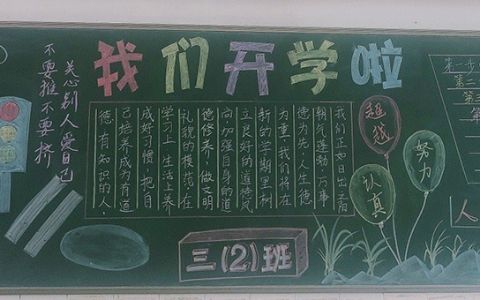 我们开学啦
关心别人爱自己
不要推不要挤
我们正如日出
朝气蓬勃,万事
德为先,人生德
为重,我们将在
新的学期里树
立良好的道德风
向,加强自身的道
德修养,做文明
礼貌的模范,在
学习上、生活上养
成好习惯,把自
己培养成为有道
德、有知识的人。
超越
努力
认真
三(2)班
第一步
第二
第三
人